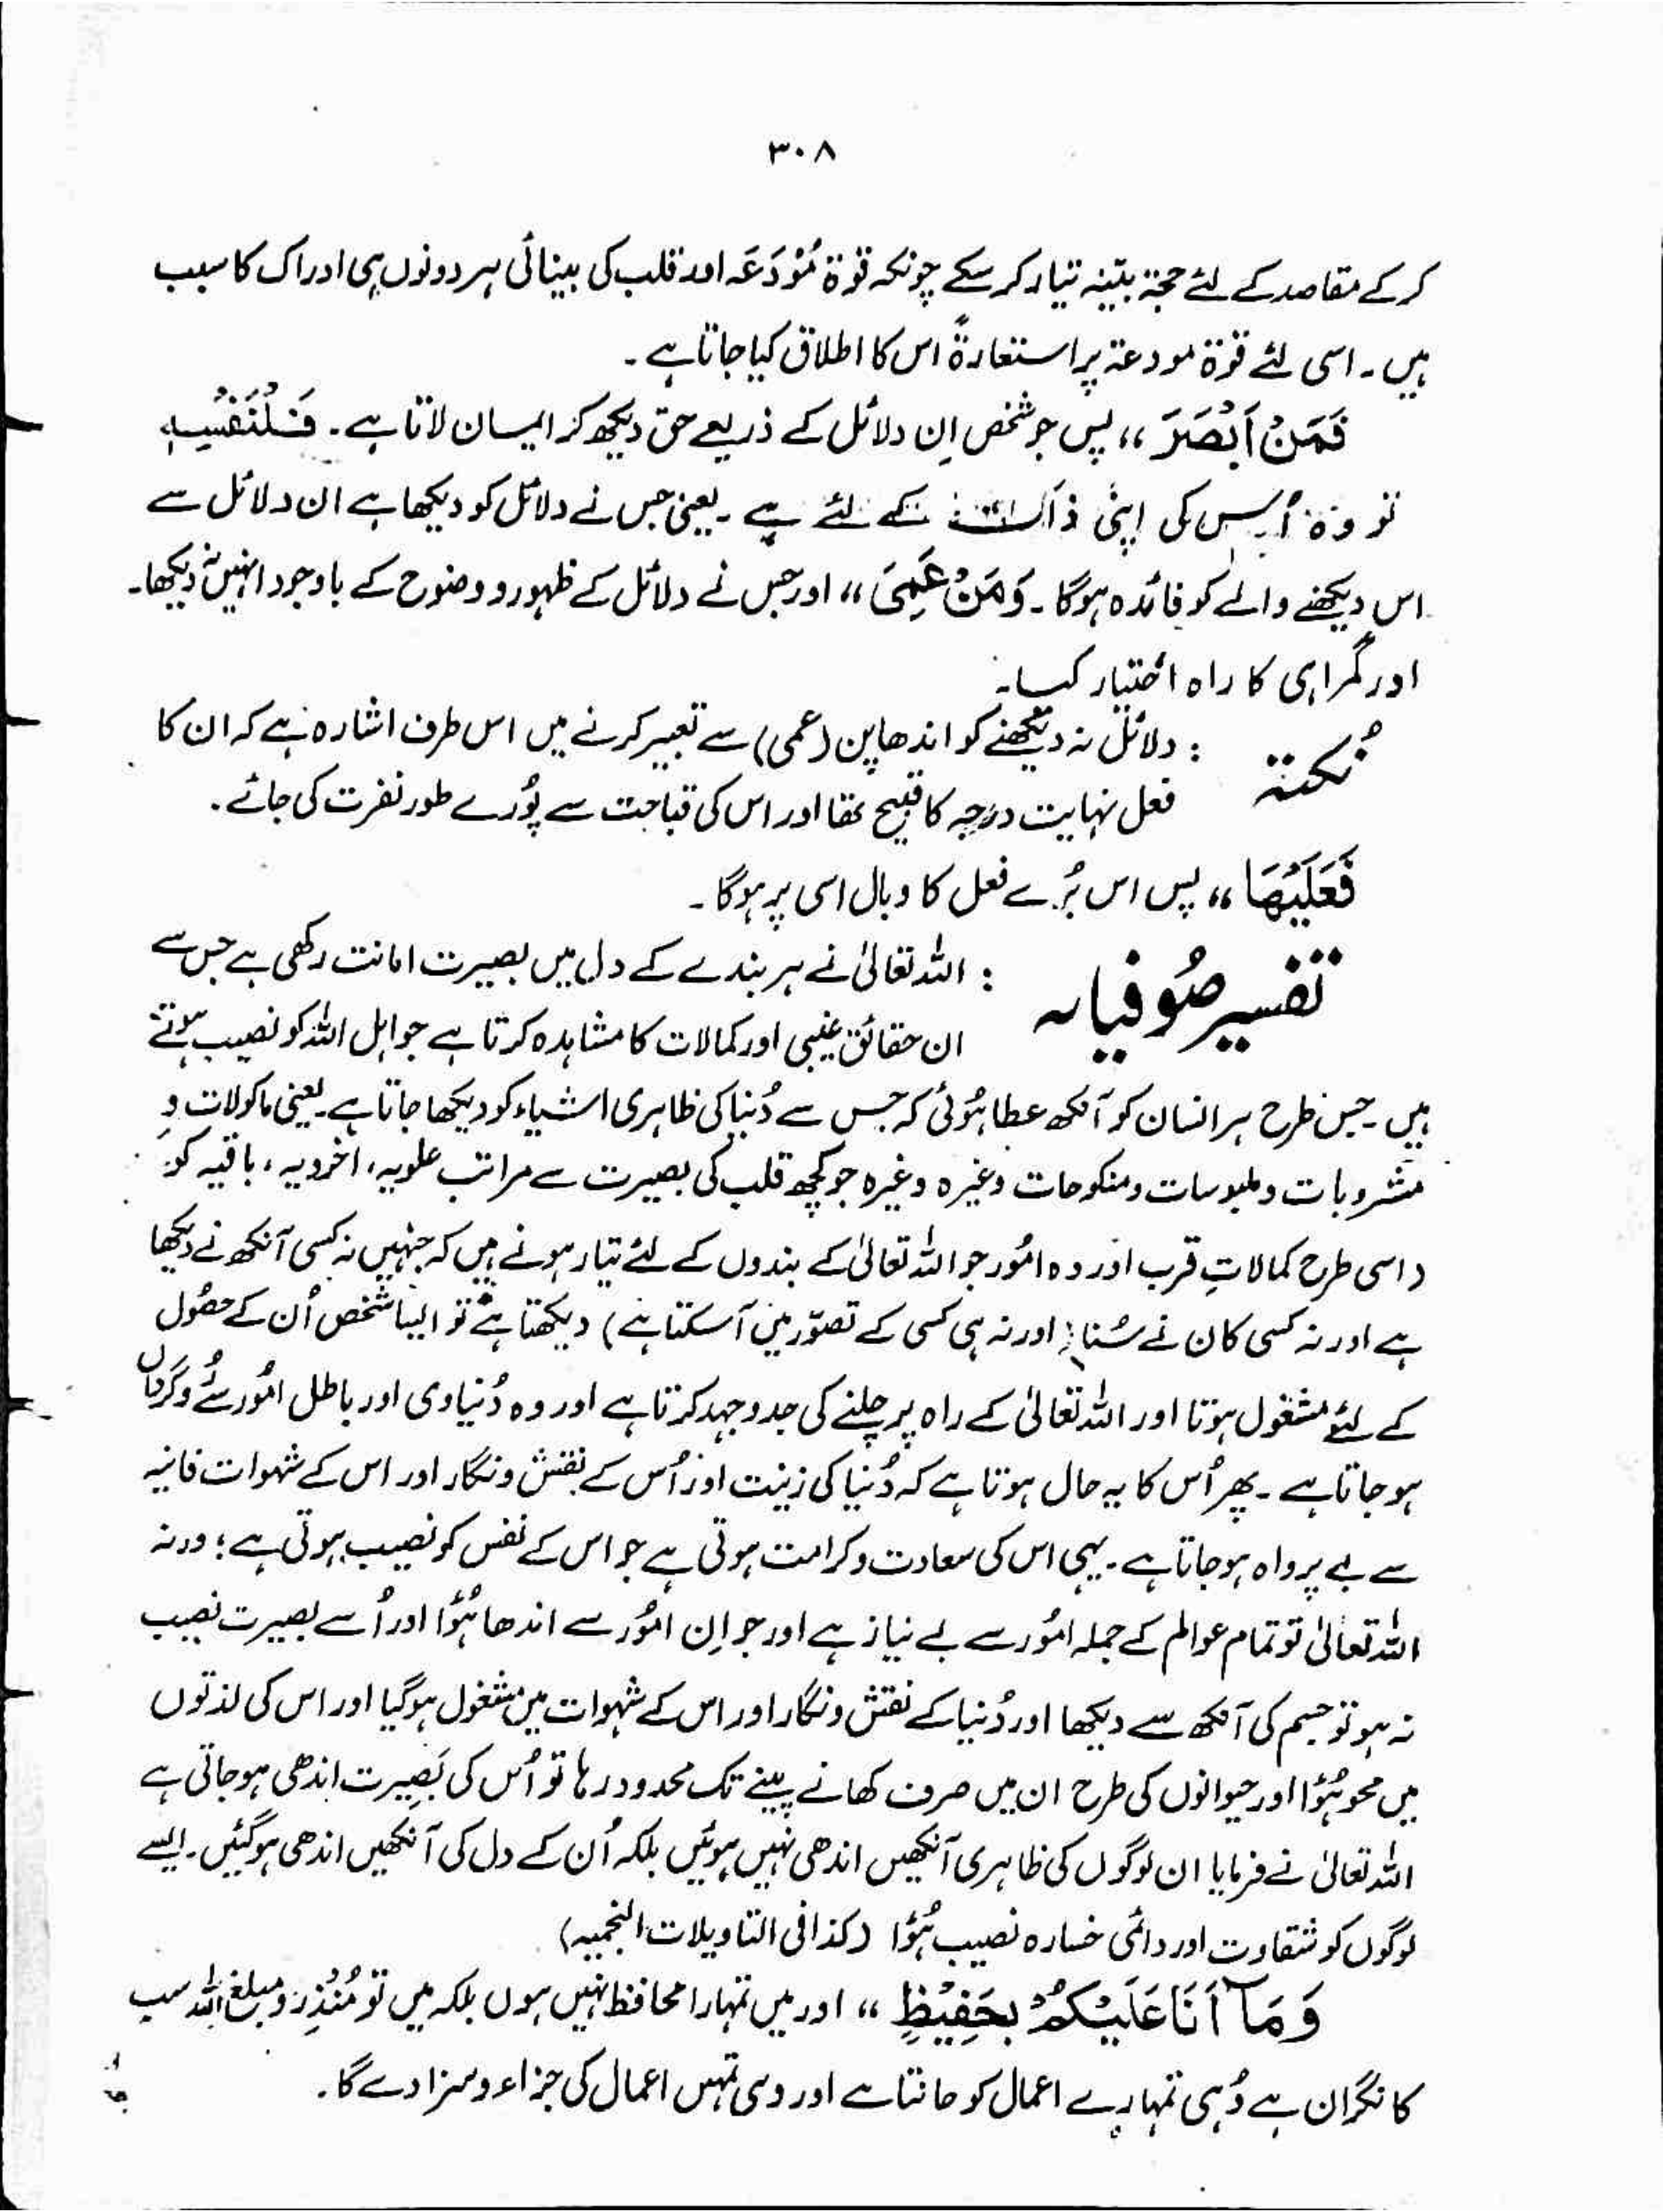 ۳۰۸
کر کے مقاصد کے لئے حجۃ بیّنہ تیار کر سکے چونکہ قوۃ مُوْدَعَہ اور قلب کی بینائی ہر دونوں ہی ادراک کا سبب
ہیں ۔ اسی لئے قوۃ مودعۃ پر استعارۃً اس کا اطلاق کیا جاتا ہے ۔
فَمَنْ اَبْصَرَ ،، پس جو شخص اِن دلائل کے ذریعے حق دیکھ کر ایمان لاتا ہے ۔ فَلِنَفْسِہٖ
تو وہ اُس کی اپنی ذات کے لئے ہے ۔ یعنی جس نے دلائل کو دیکھا ہے ان دلائل سے
اس دیکھنے والے کو فائدہ ہوگا ۔ وَمَنْ عَمِیَ ،، اور جس نے دلائل کے ظہور و وضوح کے باوجود انہیں نہ دیکھا۔
اور گمراہی کا راہ اختیار کیا۔
نُکتۃ : دلائل نہ دیکھنے کو اندھا پن (عمی) سے تعبیر کرنے میں اس طرف اشارہ ہے کہ ان کا
فعل نہایت درجہ کا قبیح تھا اور اس کی قباحت سے پُورے طور نفرت کی جائے ۔
فَعَلَیْھَا ،، پس اس بُرے فعل کا وبال اسی پر ہوگا ۔
تفسیر صُوفیانہ : اللہ تعالیٰ نے ہر بندے کے دل میں بصیرت امانت رکھی ہے جس سے
ان حقائق غیبی اور کمالات کا مشاہدہ کرتا ہے جو اہل اللہ کو نصیب ہوتے
ہیں ۔ جس طرح ہر انسان کو آنکھ عطا ہُوئی کہ جس سے دُنیا کی ظاہری اشیاء کو دیکھا جاتا ہے یعنی ماکولات و
مشروبات و ملبوسات و منکوحات وغیرہ وغیرہ جو کچھ قلب کی بصیرت سے مراتب علویہ، اخرویہ، باقیہ کو
(اسی طرح کمالاتِ قرب اور وہ امُور جو اللہ تعالیٰ کے بندوں کے لئے تیار ہونے ہیں کہ جنہیں نہ کسی آنکھ نے دیکھا
ہے اور نہ کسی کان نے سُنا؛ اور نہ ہی کسی کے تصوّر میں آسکتا ہے) دیکھتا ہے تو ایسا شخص اُن کے حصُول
کے لئے مشغول ہوتا اور اللہ تعالیٰ کے راہ پر چلنے کی جدوجہد کرتا ہے اور وہ دُنیاوی اور باطل امُور سے رُوگرداں
ہو جاتا ہے ۔ پھر اُس کا یہ حال ہوتا ہے کہ دُنیا کی زینت اور اُس کے نقش و نگار اور اس کے شہوات فانیہ
سے بے پرواہ ہو جاتا ہے ۔ یہی اس کی سعادت و کرامت ہوتی ہے جو اس کے نفس کو نصیب ہوتی ہے ؛ ورنہ
اللہ تعالیٰ تو تمام عوالم کے جملہ امُور سے بے نیاز ہے اور جو اِن امُور سے اندھا ہُوا اور اُسے بصیرت نصیب
نہ ہو تو جسم کی آنکھ سے دیکھا اور دُنیا کے نقش و نگار اور اس کے شہوات میں مشغول ہوگیا اور اس کی لذتوں
میں محو ہُوا اور حیوانوں کی طرح ان میں صرف کھانے پینے تک محدود رہا تو اُس کی بَصِیرت اندھی ہوجاتی ہے
اللہ تعالیٰ نے فرمایا ان لوگوں کی ظاہری آنکھیں اندھی نہیں ہوئیں بلکہ اُن کے دل کی آنکھیں اندھی ہوگئیں۔ ایسے
لوگوں کو شقاوت اور دائمی خسارہ نصیب ہُوا (کذافی التاویلات النجمیہ)
وَمَآ اَنَا عَلَیْکُمْ بِحَفِیْظٍ ،، اور میں تمہارا محافظ نہیں ہوں بلکہ میں تو مُنْذِر و مبلغ اللہ سب
کا نگران ہے وُہی تمہارے اعمال کو جانتا ہے اور وہی تمہیں اعمال کی جزاء و سزا دے گا ۔